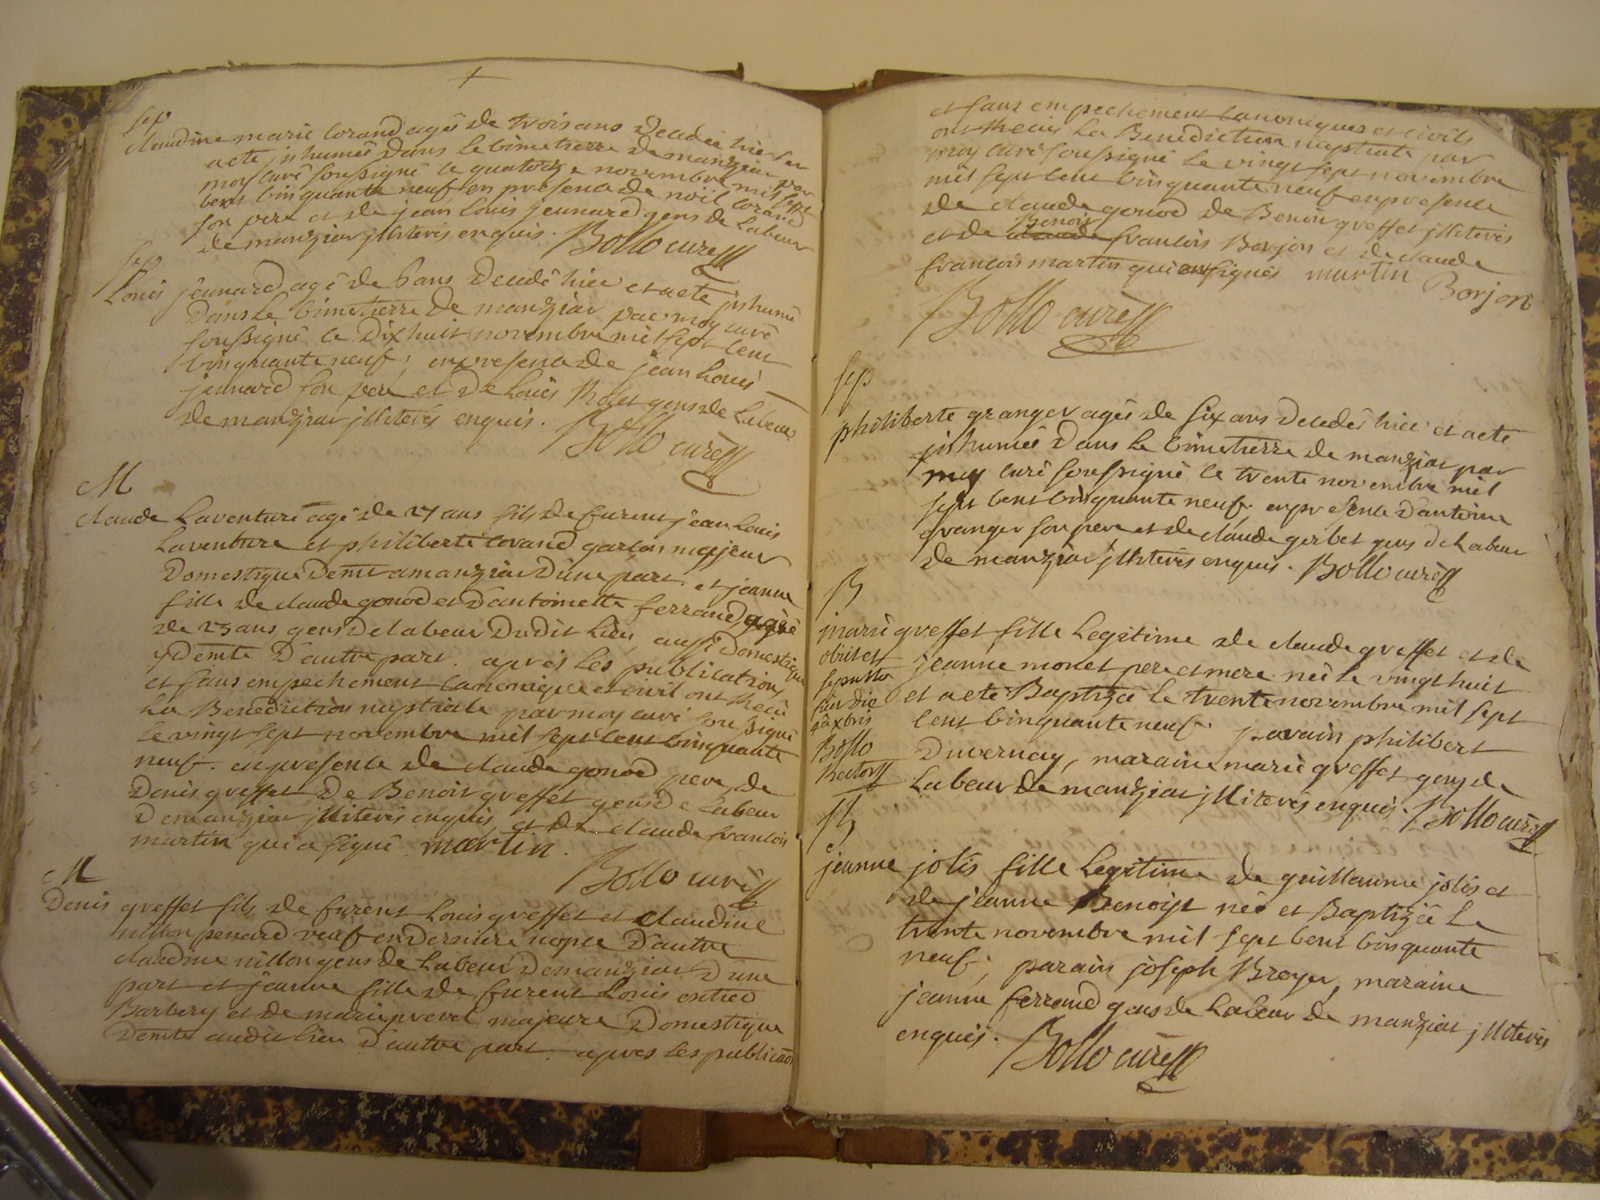 Sep
claudine marie Corand agée de trois ans decedée hier et
acté jnhumée dans le cimetierre de manziat par
moy curé soussigné le quatorze novembre mil sept
cent cinquante neuf en presence de noël Corand
son pere et de jean louis jeunard gens de labeur
de manziat jlliterés enquis. Bollo curé
Sep
Louis jeunard agé de 6 ans decedé hier et acté jnhumé
dans le cimetierre de manziat par moy curé
soussigné le dixhuit novembre mil sept cent
cinquante neuf, en presence de jean Louis
jeunard son pere et de Louis gens de labeur
de manziat jlliterés enquis. Bollo curé
M
claude Laventure agé de 27 ans fils de furent jean Louis
Laventure et philiberte Corand garçon majeur
Domestique demt a manziat d'une part. et jeanne
fille de claude gonod et d'antoinette ferrand agée
de 23 ans gens de labeur dudit lieu, aussi domestique
y demte d'autre part. après les publications
et sans empechement canonique et civil ont reçu
la Benediction nuptialle par moy curé soussigné
le vingt sept novembre mil sept cent cinquante
neuf. en presence de claude gonod pere, de
Denis greffet de Benoit greffet gens de labeur
de manziat jlliterés enquis et de claude francois
martin qui a signé. martin.
Bollo curé
M
Denis greffet fils de furent Louis greffet et claudine
nillon penard veuf en derniere nopce d'autre
claudine nillon gens de labeur de manziat d'une
part et jeanne fille de furent Louis
Barbery et de marie prevel majeure domestique
demte audit lieu d'autre part. apres les publicaõ
et sans empechement canoniques et civils
ont recus la Benediction nuptiale par
moy curé soussigné le vingt sept novembre
mil sept cent cinquante neuf en presence
de claude gonod de Benoit greffet jlliterés
Benoit
et de claude francois Borjon et de claude
francois martin qui ont signés martin Borjon
Bollo curé
Sep
philiberte granger agée de six ans decedée hier et acté
jnhumée dans le cimetierre de manziat par
moy curé soussigné le trente novembre mil
sept cent cinquante neuf en presence d'antoine
granger son pere et de claude gerbet gens de labeur
de manziat jlliterés enquis. Bollo curé
B
marie greffet fille legitime de claude greffet et de
obiit et
jeanne monet pere et mere née le vingt huit
sepulta
et acté Baptizée le trente novembre mil sept
fuit die
cent cinquante neuf. parain philibert
4a xbris
Duvernay, maraine marie greffet gens de
Bollo
Rector
labeur de manziat jlliterés enquis. Bollo curé
B
jeanne jolis fille legitime de guillaume jolis et
de jeanne Benoist née et Baptizée le
trente novembre mil sept cent cinquante
neuf, parain joseph Broyer, maraine
jeanne ferrand gens de labeur de manziat jlliterés
enquis. Bollo curé